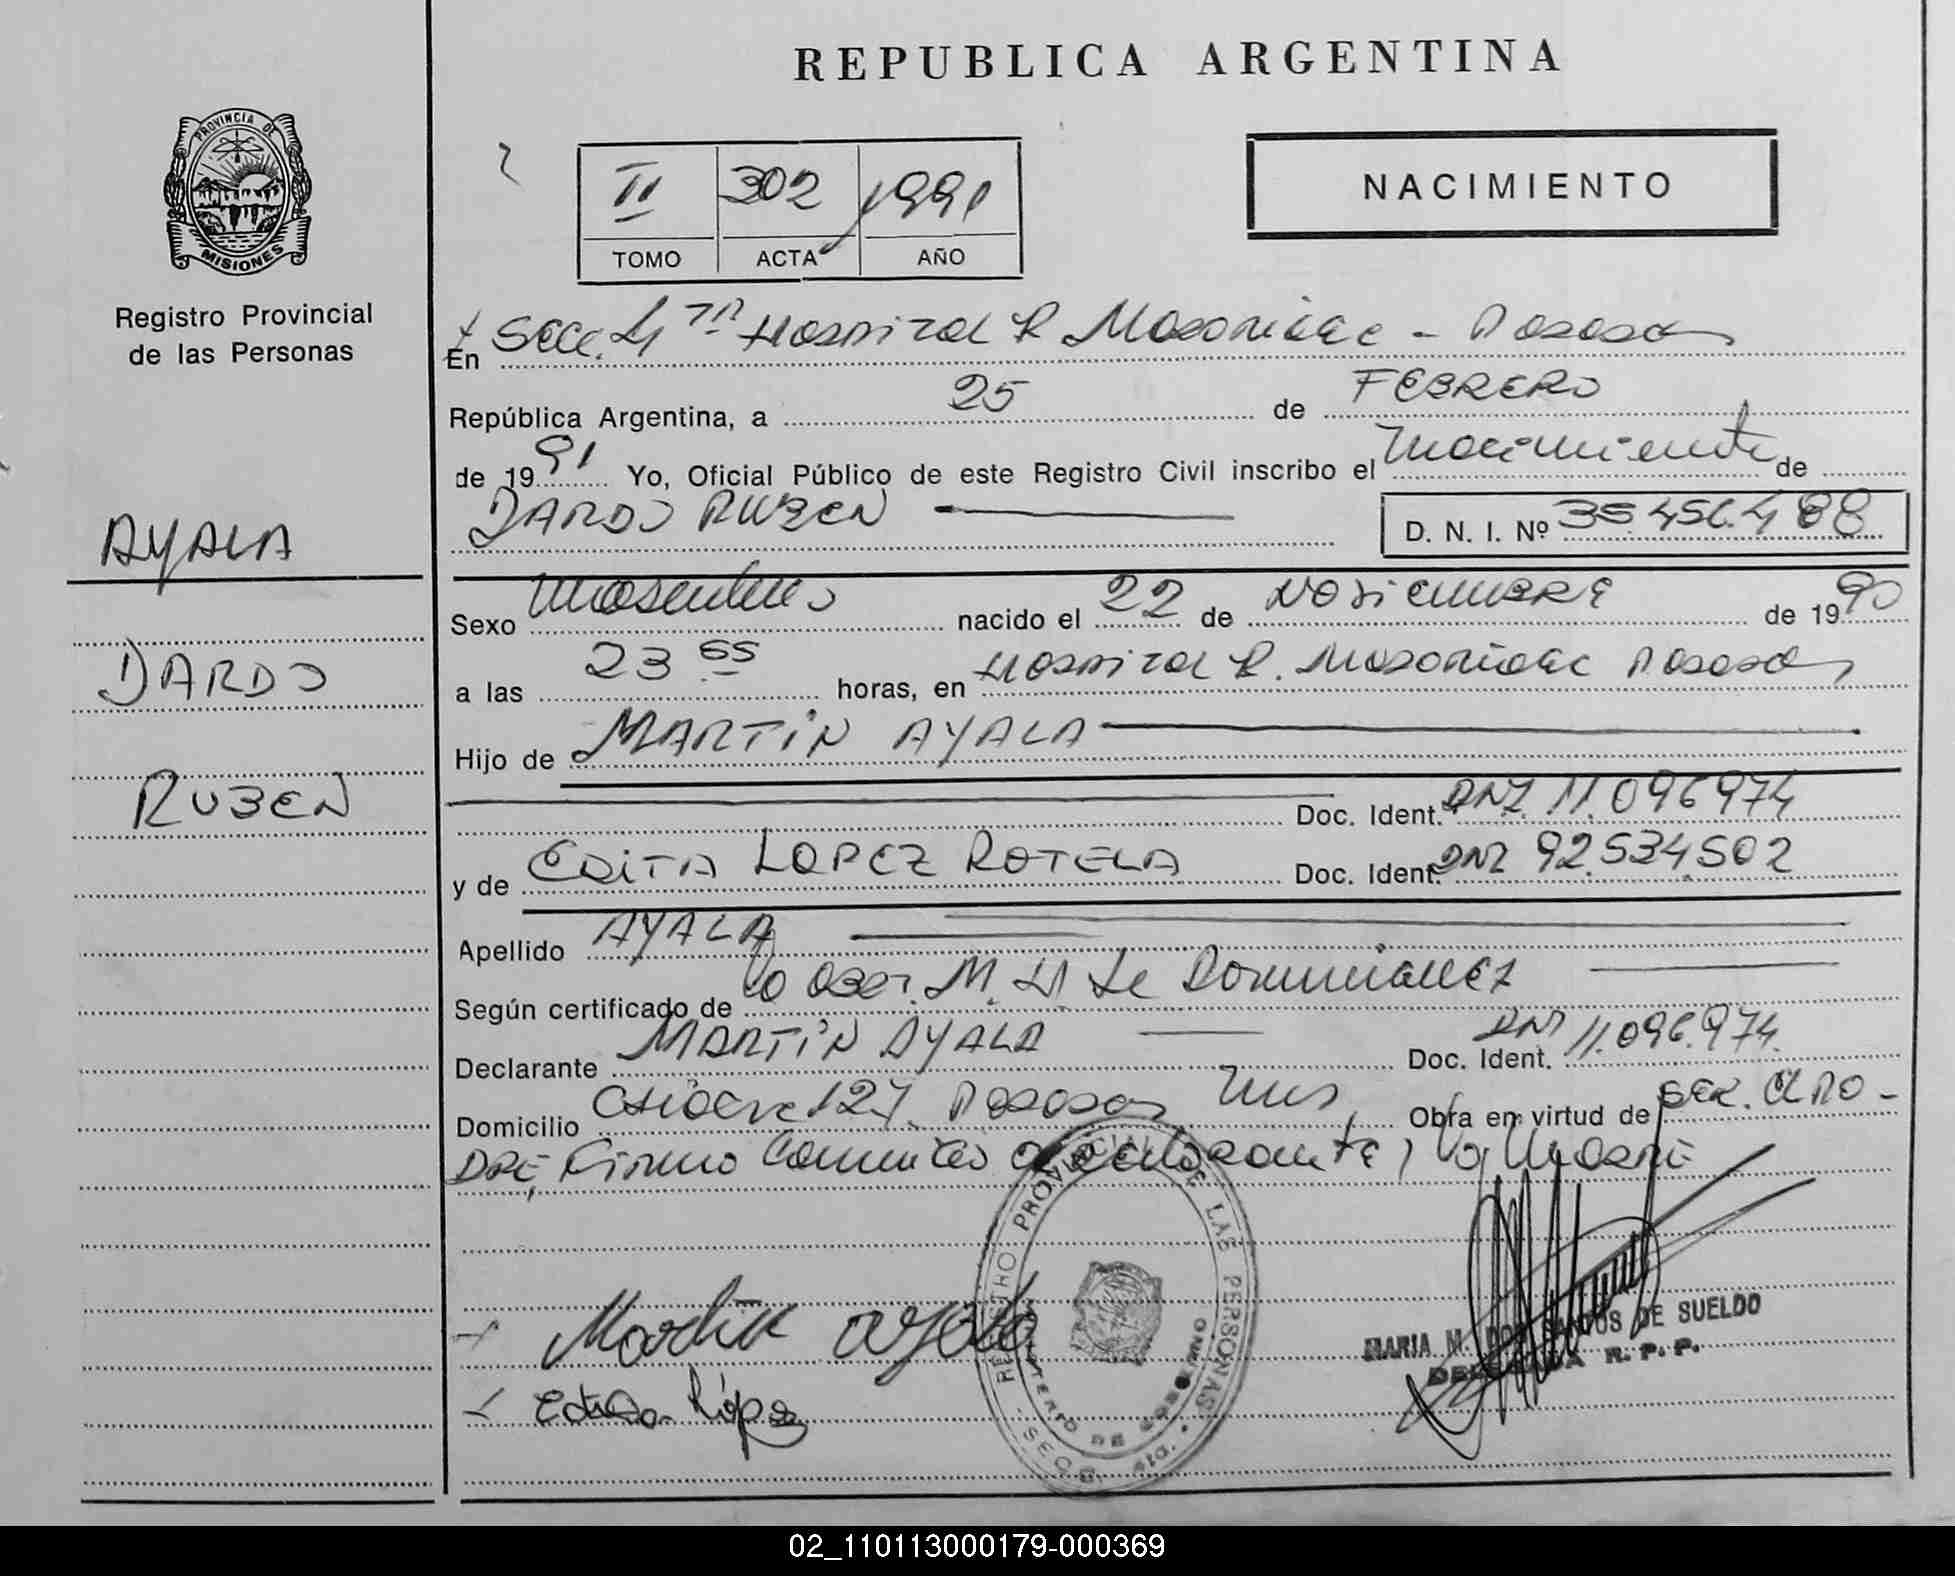 REPUBLICA ARGENTINA
PROVINCIA DE
MISIONES
Registro Provincial
de las Personas
II 302 1991
TOMO ACTA AÑO
NACIMIENTO
En Secc. 4 Hospital R Madariaga - Posadas
República Argentina, a 25 de FEBRERO
de 1991 Yo, Oficial Público de este Registro Civil inscribo el nacimiento de
DARDO RUBEN D. N. I. Nº 35.456.488
AYALA
DARDO
RUBEN
Sexo Masculino nacido el 22 de NOVIEMBRE de 1990
a las 23 55 horas, en Hospital R. Madariaga Posadas
Hijo de MARTIN AYALA
Doc. Ident. DNI 11.096974
y de EDITA LOPEZ ROTELA Doc. Ident. DNI 92.534.502
Apellido AYALA
Según certificado de la Obst. M. de Dominguez
Declarante MARTIN AYALA Doc. Ident. DNI 11.096.974.
Domicilio 127. Posadas Mns Obra en virtud de ser. el PA-
DRE, Firma la declarante,
Martin ayala
Edita López
REGISTRO PROVINCIAL DE LAS PERSONAS
MINISTERIO DE GOBIERNO
MARIA M. DOS SANTOS DE SUELDO
DELEGADA R. P. P.
02_110113000179-000369